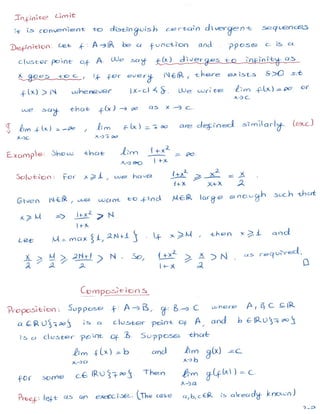 Infinite Limit
it is convenient to distinguish certain divergent sequences
Definition: Let f A→R be a function and pposes c is a
cluster point of A We say f(x) diverges to infinity as
x goes to c, if for every N∈R, there exists δ>0 s.t
f(x) > N whenever |x-c| < δ. We write lim f(x) = ∞ or
x→c
we say that f(x) → ∞ as x → c.
lim f(x) = -∞ , lim f(x) = ±∞ are defined similarly (exc)
x→c x→±∞
Example: Show that lim 1+x² = ∞
x→∞ 1+x
Solution: For x≥1, we have 1+x² ≥ x² = x
1+x x+x 2
Given N∈R, we want to find M∈R large enough such that
x≥M ⇒ 1+x² > N
1+x
Let M = max {1, 2N+1}. If x≥M, then x≥1 and
x ≥ M ≥ 2N+1 > N. So, 1+x² ≥ x > N, as required.
2 2 2 1+x 2 □
Compositions
Proposition: Suppose f A→B, g: B→C where A, B, C ⊆ R
a∈RU{±∞} is a cluster point of A, and b∈RU{±∞}
is a cluster point of B. Suppose that
lim f(x) = b and lim g(x) = c
x→a x→b
for some c∈RU{±∞} Then lim g(f(x)) = c
x→a
Proof: left as an exercise. (The case a,b,c∈R is already known)